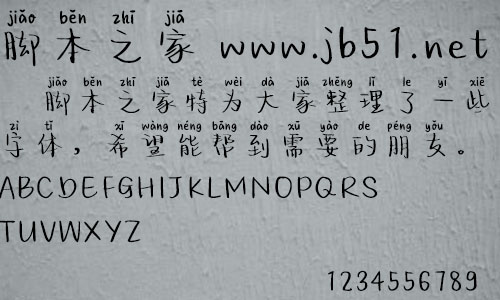 jiǎo běn zhī jiā
脚本之家 www.jb51.net
jiǎo běn zhī jiā tè wèi dà jiā zhěng lǐ le yī xiē
脚本之家特为大家整理了一些
zì tǐ xī wàng néng bāng dào xū yào de péng yǒu
字体，希望能帮到需要的朋友。
ABCDEFGHIJKLMNOPQRS
TUVWXYZ
1234556789